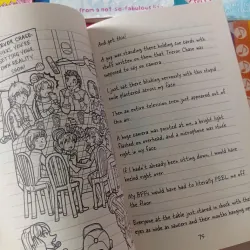 from a not so fabulous
EVER CHASE:
GETTING HER
OWN REALITY
SHOW!
And get this!
A guy was standing there holding cue cards with
stuff written on them that Trevor Chase was
supposed to say on camera.
I just sat there blinking nervously with this stupid
smile plastered across my face.
Then an entire television crew just appeared out of
thin air.
A huge camera was pointed at me, a bright light
flashed on overhead, and a microphone was stuck
right in my face.
If I hadn't already been sitting down, I would have
keeled right over.
My BFFs would have had to literally PEEL me off
the floor.
Everyone at the table just stared in shock with their
eyes as wide as saucers and their mouths hanging
75